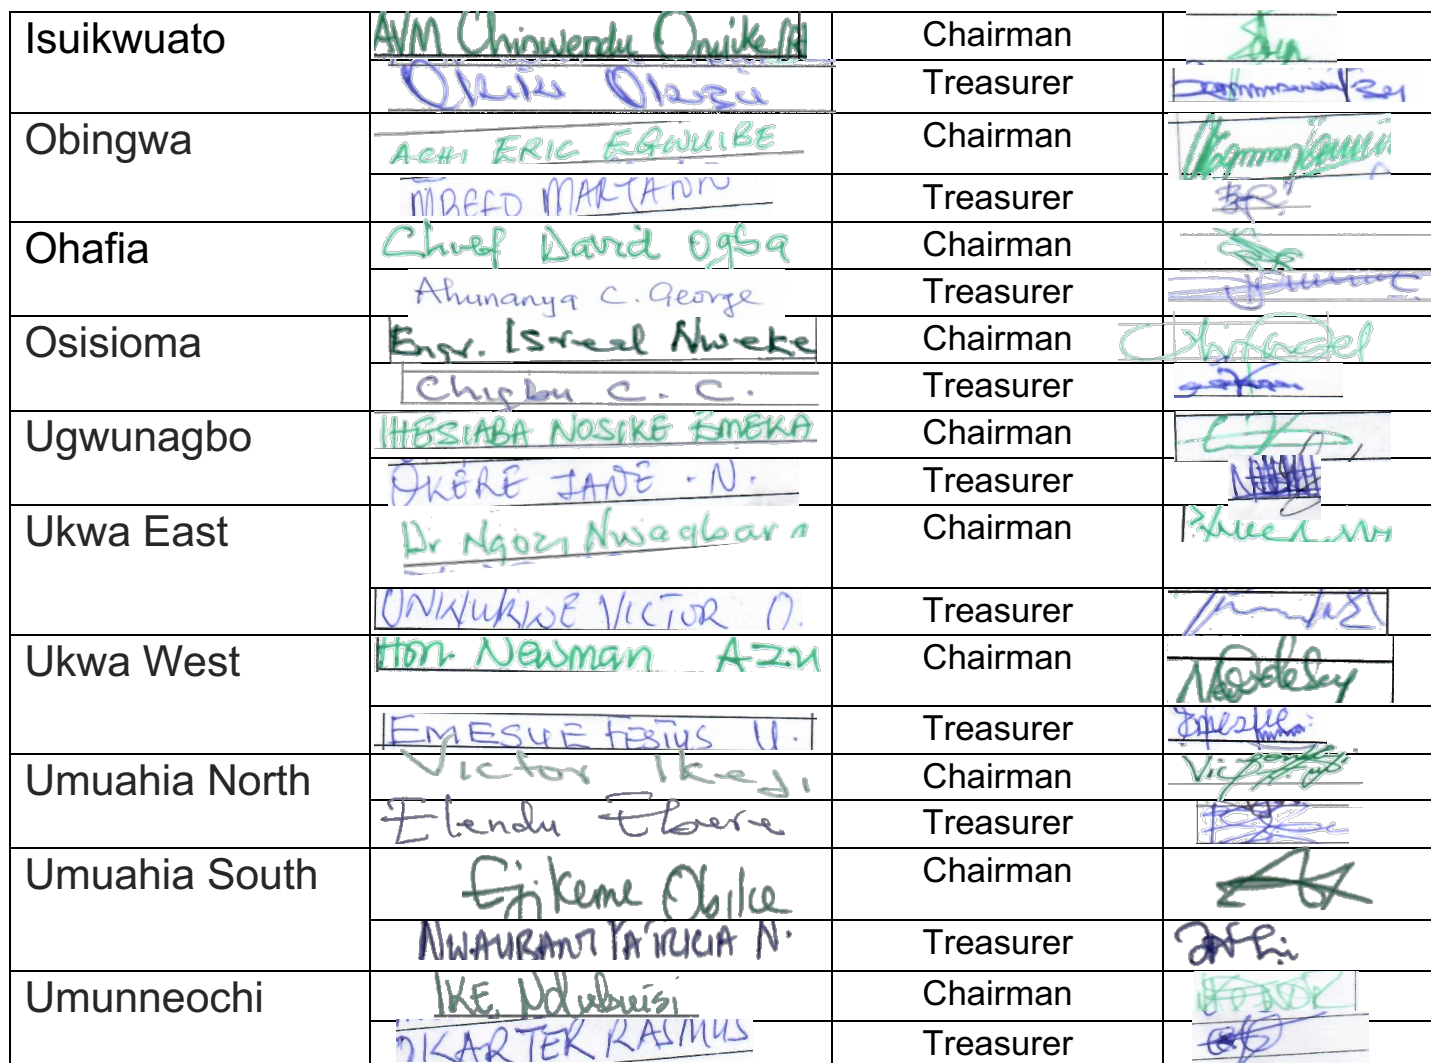 Isuikwuato AVM Chinwendu Onyike Chairman
Okike Okezie Treasurer
Obingwa ACHI ERIC EGWUIBE Chairman
MBEFO MARYANN Treasurer
Ohafia Chief David Ogba Chairman
Ahunanya C. George Treasurer
Osisioma Engr. Isreal Nweke Chairman
Chigbu C. C. Treasurer
Ugwunagbo IHESIABA NOSIKE EMEKA Chairman
OKERE JANE . N. Treasurer
Ukwa East Dr Ngozi Nwagbara Chairman
ONWUKWE VICTOR O. Treasurer
Ukwa West Hon. Newman AZU Chairman
EMESUE FESTUS U. Treasurer
Umuahia North Victor Ikeji Chairman
Elendu Ebere Treasurer
Umuahia South Ejikeme Obike Chairman
PATRICIA N. Treasurer
Umunneochi IKE Ndubuisi Chairman
OKARTER RASMUS Treasurer